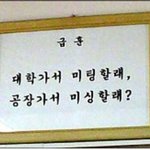 급훈
대학가서 미팅할래,
공장가서 미싱할래?